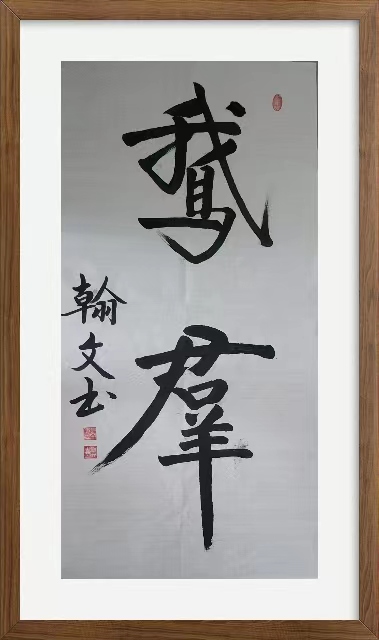 鵞羣
翰文书